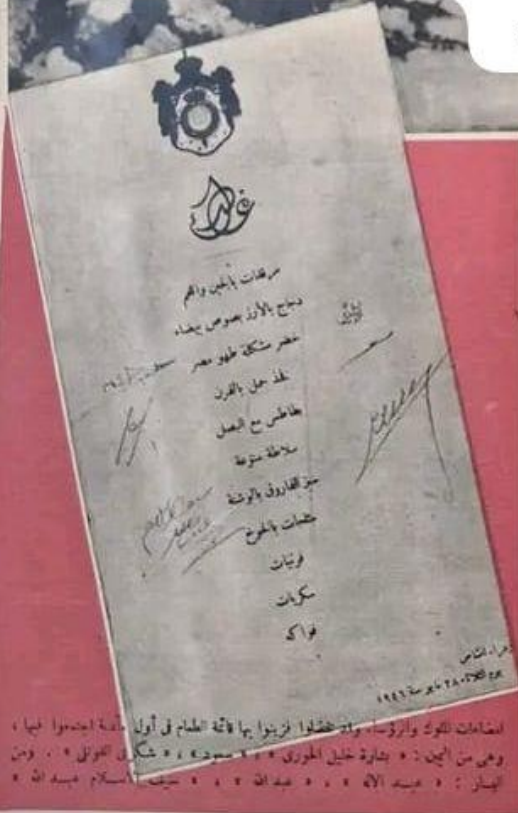 غداء
مرققات بالجبن واللحم
دجاج بالأرز بصوص بيضاء
خضر مشكلة طهو مصر
فخذ حمل بالفرن
بطاطس مع البصل
سلاطة منوعة
خبز الفاروق بالوشنة
مثلجات بالخوخ
فرنيات
سكريات
فواكه
يوم الثلاثاء ٢٨ مايو سنة ١٩٤٦
امضاءات الملوك والرؤساء، وقد تفضلوا فزينوا بها قائمة الطعام في أول مأدبة اجتمعوا فيها ،
وهي من اليمين : « بشارة خليل الخوري » ، « سعود » ، « شكري القوتلي » . ومن
اليسار : « عبد الاله » ، « عبد الله » ، « سيف الاسلام عبد الله »